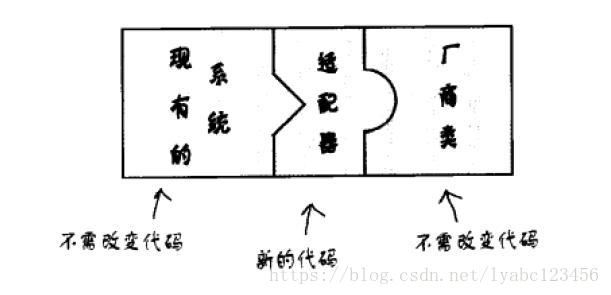 现有的
系统
适配器
厂商类
不需改变代码
新的代码
不需改变代码
https://blog.csdn.net/lyabc123456